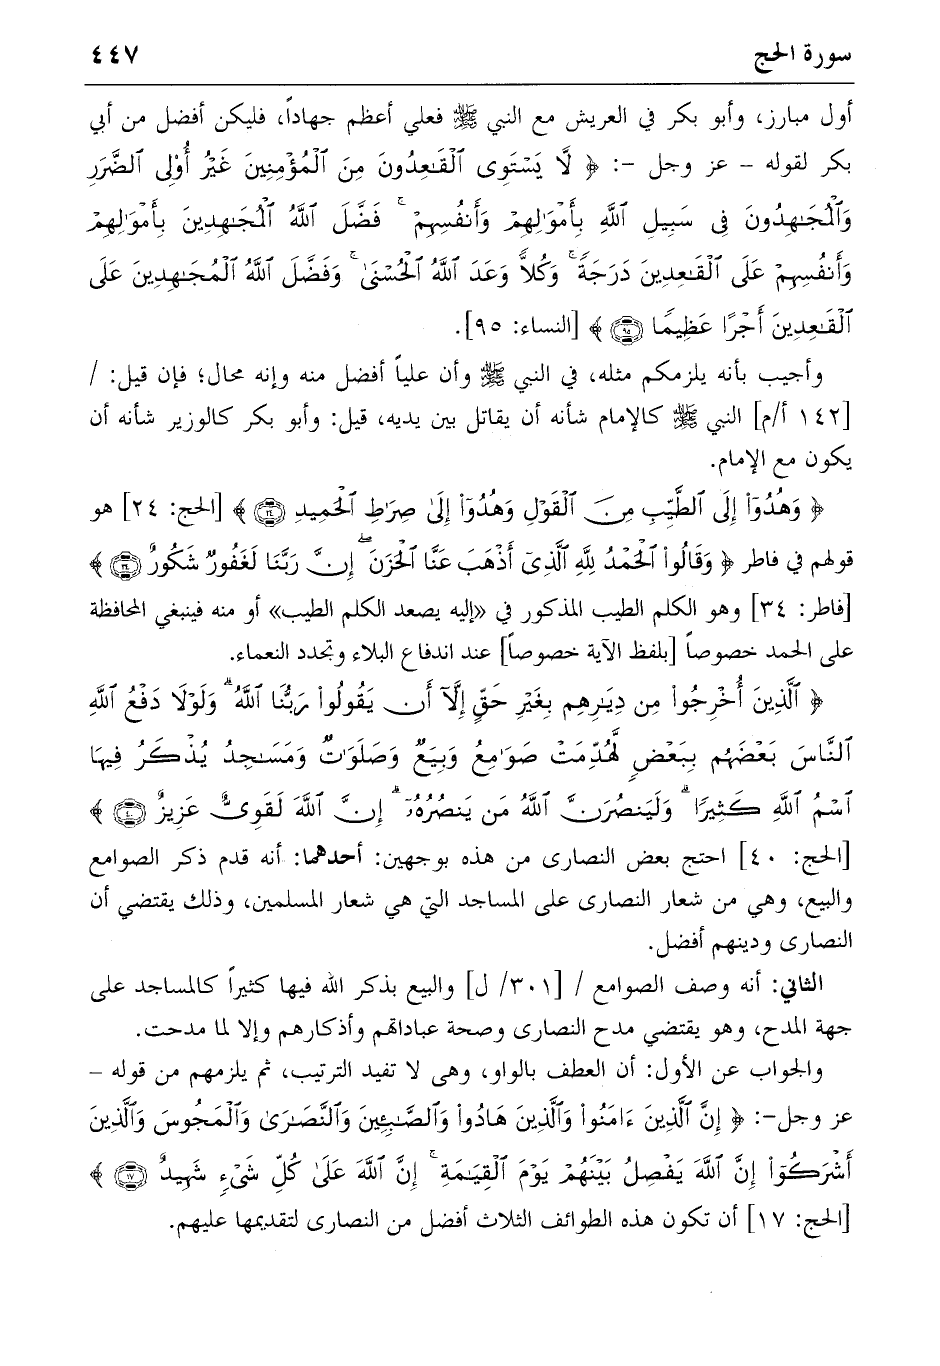 سورة الحج ٤٤٧
أول مبارز، وأبو بكر في العريش مع النبي ﷺ فعلي أعظم جهاداً، فليكن أفضل من أبي
بكر لقوله – عز وجل –: ﴿ لَّا يَسْتَوِى ٱلْقَـٰعِدُونَ مِنَ ٱلْمُؤْمِنِينَ غَيْرُ أُو۟لِى ٱلضَّرَرِ
وَٱلْمُجَـٰهِدُونَ فِى سَبِيلِ ٱللَّهِ بِأَمْوَٰلِهِمْ وَأَنفُسِهِمْ ۚ فَضَّلَ ٱللَّهُ ٱلْمُجَـٰهِدِينَ بِأَمْوَٰلِهِمْ
وَأَنفُسِهِمْ عَلَى ٱلْقَـٰعِدِينَ دَرَجَةً ۚ وَكُلًّا وَعَدَ ٱللَّهُ ٱلْحُسْنَىٰ ۚ وَفَضَّلَ ٱللَّهُ ٱلْمُجَـٰهِدِينَ عَلَى
ٱلْقَـٰعِدِينَ أَجْرًا عَظِيمًا ٩٥ ﴾ [النساء: ٩٥].
وأجيب بأنه يلزمكم مثله، في النبي ﷺ وأن علياً أفضل منه وإنه محال؛ فإن قيل: /
[١٤٢ أ/م] النبي ﷺ كالإمام شأنه أن يقاتل بين يديه، قيل: وأبو بكر كالوزير شأنه أن
يكون مع الإمام.
﴿ وَهُدُوٓا۟ إِلَى ٱلطَّيِّبِ مِنَ ٱلْقَوْلِ وَهُدُوٓا۟ إِلَىٰ صِرَٰطِ ٱلْحَمِيدِ ٢٤ ﴾ [الحج: ٢٤] هو
قولهم في فاطر ﴿ وَقَالُوا۟ ٱلْحَمْدُ لِلَّهِ ٱلَّذِىٓ أَذْهَبَ عَنَّا ٱلْحَزَنَ ۖ إِنَّ رَبَّنَا لَغَفُورٌ شَكُورٌ ٣٤ ﴾
[فاطر: ٣٤] وهو الكلم الطيب المذكور في «إليه يصعد الكلم الطيب» أو منه فينبغي المحافظة
على الحمد خصوصاً [بلفظ الآية خصوصاً] عند اندفاع البلاء وتجدد النعماء.
﴿ ٱلَّذِينَ أُخْرِجُوا۟ مِن دِيَـٰرِهِم بِغَيْرِ حَقٍّ إِلَّآ أَن يَقُولُوا۟ رَبُّنَا ٱللَّهُ ۗ وَلَوْلَا دَفْعُ ٱللَّهِ
ٱلنَّاسَ بَعْضَهُم بِبَعْضٍ لَّهُدِّمَتْ صَوَٰمِعُ وَبِيَعٌ وَصَلَوَٰتٌ وَمَسَـٰجِدُ يُذْكَرُ فِيهَا
ٱسْمُ ٱللَّهِ كَثِيرًا ۗ وَلَيَنصُرَنَّ ٱللَّهُ مَن يَنصُرُهُۥٓ ۗ إِنَّ ٱللَّهَ لَقَوِىٌّ عَزِيزٌ ٤٠ ﴾
[الحج: ٤٠] احتج بعض النصارى من هذه بوجهين: أحدهما: أنه قدم ذكر الصوامع
والبيع، وهي من شعار النصارى على المساجد التي هي شعار المسلمين، وذلك يقتضي أن
النصارى ودينهم أفضل.
الثاني: أنه وصف الصوامع / [٣٠١/ ل] والبيع بذكر الله فيها كثيراً كالمساجد على
جهة المدح، وهو يقتضي مدح النصارى وصحة عباداتهم وأذكارهم وإلا لما مدحت.
والجواب عن الأول: أن العطف بالواو، وهى لا تفيد الترتيب، ثم يلزمهم من قوله –
عز وجل–: ﴿ إِنَّ ٱلَّذِينَ ءَامَنُوا۟ وَٱلَّذِينَ هَادُوا۟ وَٱلصَّـٰبِـِٔينَ وَٱلنَّصَـٰرَىٰ وَٱلْمَجُوسَ وَٱلَّذِينَ
أَشْرَكُوٓا۟ إِنَّ ٱللَّهَ يَفْصِلُ بَيْنَهُمْ يَوْمَ ٱلْقِيَـٰمَةِ ۚ إِنَّ ٱللَّهَ عَلَىٰ كُلِّ شَىْءٍ شَهِيدٌ ١٧ ﴾
[الحج: ١٧] أن تكون هذه الطوائف الثلاث أفضل من النصارى لتقديمها عليهم.